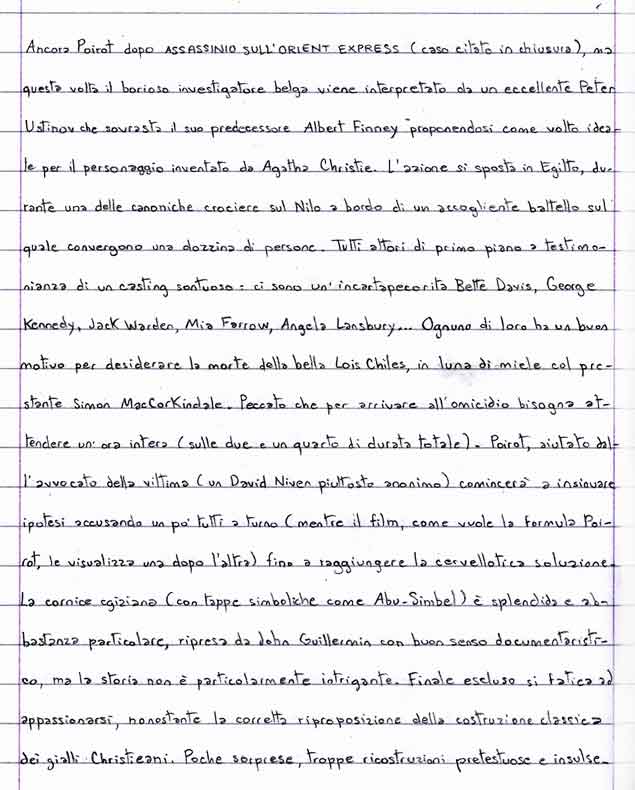 Ancora Poirot dopo ASSASSINIO SULL'ORIENT EXPRESS (caso citato in chiusura), ma
questa volta il borioso investigatore belga viene interpretato da un eccellente Peter
Ustinov che sovrasta il suo predecessore Albert Finney proponendosi come volto idea-
le per il personaggio inventato da Agatha Christie. L'azione si sposta in Egitto, du-
rante una delle canoniche crociere sul Nilo a bordo di un accogliente battello sul
quale convergono una dozzina di persone. Tutti attori di primo piano a testimo-
nianza di un casting sontuoso: ci sono un'incartapecorita Bette Davis, George
Kennedy, Jack Warden, Mia Farrow, Angela Lansbury... Ognuno di loro ha un buon
motivo per desiderare la morte della bella Lois Chiles, in luna di miele col pre-
stante Simon MacCorkindale. Peccato che per arrivare all'omicidio bisogna at-
tendere un'ora intera (sulle due e un quarto di durata totale). Poirot, aiutato dal-
l'avvocato della vittima (un David Niven piuttosto anonimo) comincerà a insinuare
ipotesi accusando un po' tutti a turno (mentre il film, come vuole la formula Poi-
rot, le visualizza una dopo l'altra) fino a raggiungere la cervellotica soluzione.
La cornice egiziana (con tappe simboliche come Abu-Simbel) è splendida e ab-
bastanza particolare, ripresa da John Guillermin con buon senso documentaristi-
co, ma la storia non è particolarmente intrigante. Finale escluso si fatica ad
appassionarsi, nonostante la corretta riproposizione della costruzione classica
dei gialli Christieani. Poche sorprese, troppe ricostruzioni pretestuose e insulse.